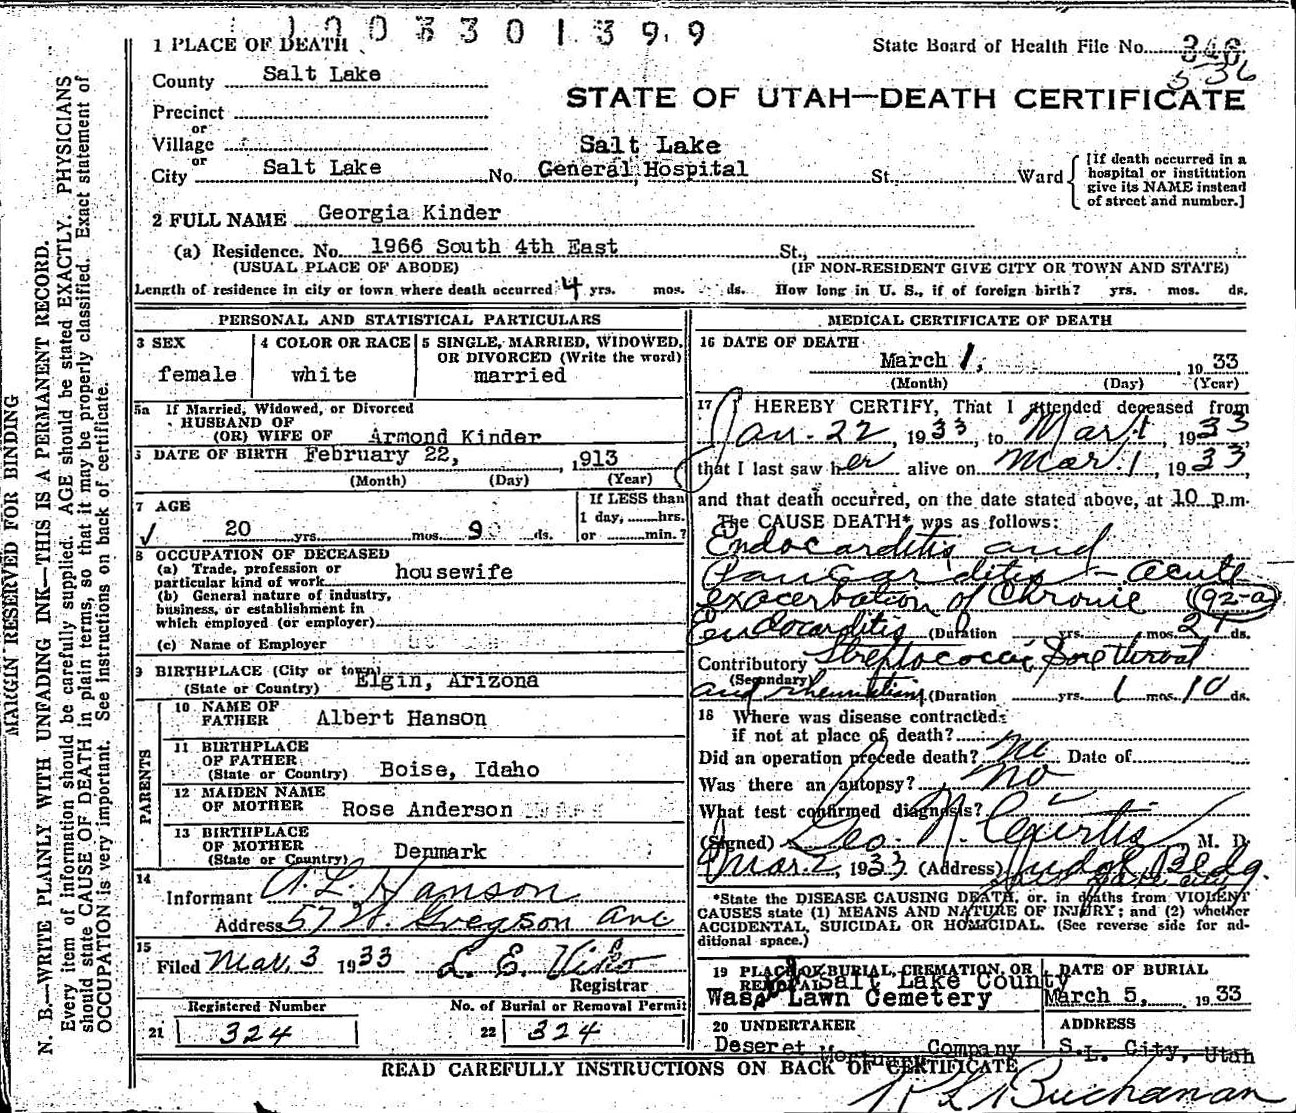 1003301399
1 PLACE OF DEATH
State Board of Health File No. 346
536
County Salt Lake
STATE OF UTAH—DEATH CERTIFICATE
Precinct
or
Village
or
City Salt Lake No. Salt Lake General Hospital St. Ward
[If death occurred in a
hospital or institution
give its NAME instead
of street and number.]
2 FULL NAME Georgia Kinder
(a) Residence. No. 1966 South 4th East St.,
(USUAL PLACE OF ABODE) (IF NON-RESIDENT GIVE CITY OR TOWN AND STATE)
Length of residence in city or town where death occurred 4 yrs. mos. ds. How long in U. S., if of foreign birth? yrs. mos. ds.
PERSONAL AND STATISTICAL PARTICULARS
3 SEX
female
4 COLOR OR RACE
white
5 SINGLE, MARRIED, WIDOWED,
OR DIVORCED (Write the word)
married
5a If Married, Widowed, or Divorced
HUSBAND OF
(OR) WIFE OF Armond Kinder
6 DATE OF BIRTH February 22, 1913
(Month) (Day) (Year)
7 AGE
20 yrs. mos. 9 ds.
If LESS than
1 day, hrs.
or min.?
8 OCCUPATION OF DECEASED
(a) Trade, profession or
particular kind of work housewife
(b) General nature of industry,
business, or establishment in
which employed (or employer)
(c) Name of Employer
9 BIRTHPLACE (City or town)
(State or Country) Elgin, Arizona
PARENTS
10 NAME OF
FATHER Albert Hanson
11 BIRTHPLACE
OF FATHER
(State or Country) Boise, Idaho
12 MAIDEN NAME
OF MOTHER Rose Anderson
13 BIRTHPLACE
OF MOTHER
(State or Country) Denmark
14
Informant A. L. Hanson
Address 57 W. Gregson Ave
15
Filed Mar. 3 1933 L. E. Viko
Registrar
Registered Number
21 324
No. of Burial or Removal Permit
22 324
MEDICAL CERTIFICATE OF DEATH
16 DATE OF DEATH
March 1, 1933
(Month) (Day) (Year)
17 I HEREBY CERTIFY, That I attended deceased from
Jan. 22, 1933, to Mar. 1, 1933
that I last saw her alive on Mar. 1, 1933
and that death occurred, on the date stated above, at 10 p.m.
The CAUSE DEATH* was as follows:
Endocarditis and
Pancarditis - acute
exacerbation of Chronic (92-a)
Endocarditis (Duration yrs. mos. 21 ds.
Contributory Streptococcic Sore throat
(Secondary)
and rheumatism (Duration yrs. 1 mos. 10 ds.
18 Where was disease contracted
if not at place of death?
Did an operation precede death? no Date of
Was there an autopsy? No
What test confirmed diagnosis?
(Signed) Geo N. Curtis M. D.
Mar. 2, 1933 (Address) Judge Bldg.
Salt Lake City
*State the DISEASE CAUSING DEATH, or, in deaths from VIOLENT
CAUSES state (1) MEANS AND NATURE OF INJURY; and (2) whether
ACCIDENTAL, SUICIDAL OR HOMICIDAL. (See reverse side for ad-
ditional space.)
19 PLACE OF BURIAL, CREMATION, OR
REMOVAL Salt Lake County
Wasatch Lawn Cemetery
DATE OF BURIAL
March 5, 1933
20 UNDERTAKER
Deseret Mortuary Company
ADDRESS
S. L. City, Utah
READ CAREFULLY INSTRUCTIONS ON BACK OF CERTIFICATE
Buchanan
MARGIN RESERVED FOR BINDING
N. B.—WRITE PLAINLY WITH UNFADING INK—THIS IS A PERMANENT RECORD.
Every item of information should be carefully supplied. AGE should be stated EXACTLY. PHYSICIANS
should state CAUSE OF DEATH in plain terms, so that it may be properly classified. Exact statement of
OCCUPATION is very important. See instructions on back of certificate.